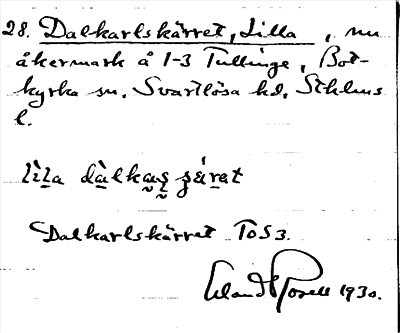 28. Dalkarlskärret, Lilla, nu
åkermark å 1-3 Tullinge, Bot-
kyrka sn. Svartlösa hd. Sthlms
l.
lìla dàlkaṣ
Dalkarlskärret TOS3.
Erland Rosell 1930.